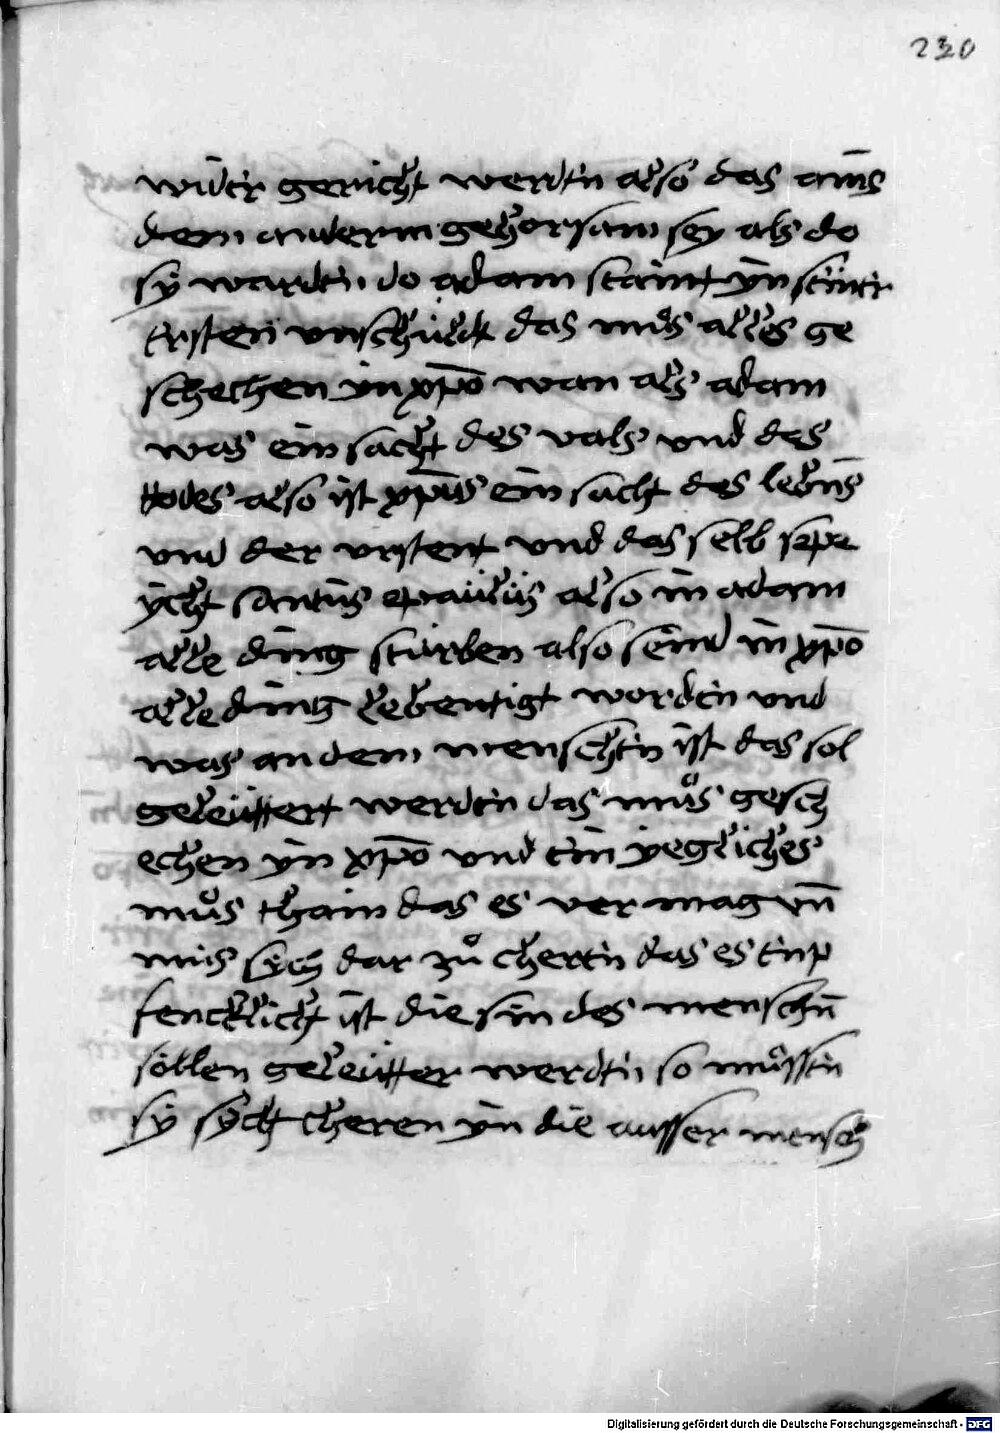 230
wider gericht werden also das ains
dem anderm gehorsam sey als do
sÿ warden do adam staint yn seiner
ersten vnschuldt das mus alles ge
schechen yn xp̄o wan als adam
was ein sach des vals vnd des
todes also ist xp̄us ein sach des lebn̄s
vnd der vrstent vnd das selb spr
ÿcht santus paulus also in adam
alle ding sturben also seind in xp̄o
alle ding lebentigt worden vnd
was an dem menschen ist das sol
geleuttert werden das můs gesch
echen yn xp̄o vnd ein yegliches
můs thain das es ver mag vn̄
mus sych dar zů cheren das es enp
fencklich ist die sin des menschn̄
söllen geleutter werden so můssen
sÿ sych cheren yn die ausser mensch
Digitalisierung gefördert durch die Deutsche Forschungsgemeinschaft - DFG